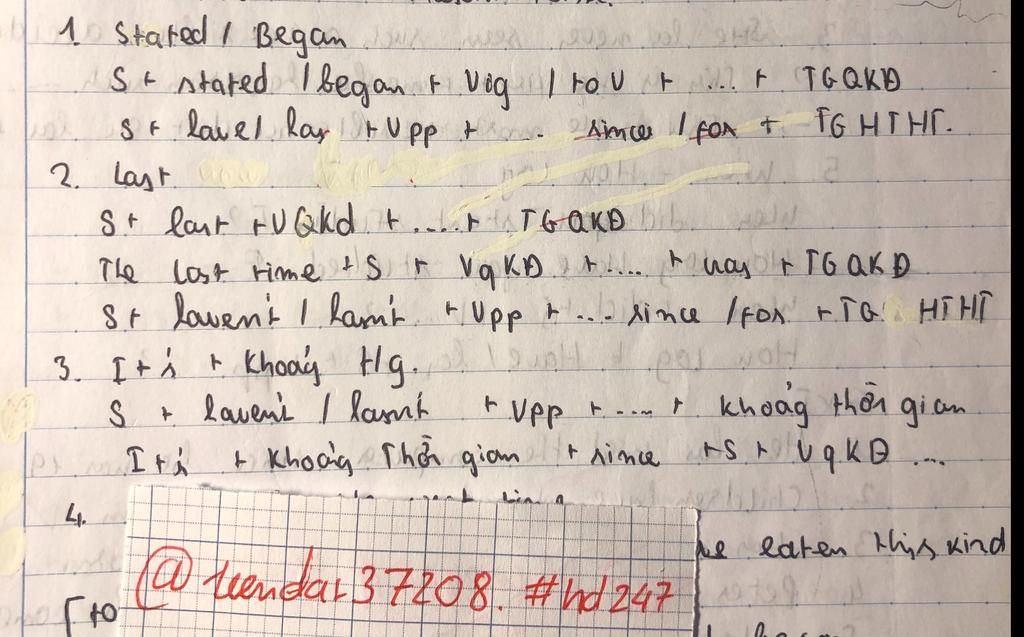 1. Stated / Began
S + stated / began + Vig / to V + ... + TGQKĐ
S + have / has + Vpp + .... since / for + TG HTHT.
2. Last
S + last + VQKđ + ..... + TGQKĐ
The last time + S + VqKĐ + .... + was + TGQKĐ
S + haven't / hasn't + Vpp + ... since / for + TG HTHT
3. It is + Khoảg t/g.
S + haven't / hasn't + Vpp + .... + khoảg thời gian
It is + Khoảg Thời gian + since + S + VqKĐ ...
4.
eaten this kind
@tuendat37208. #hd247
[to